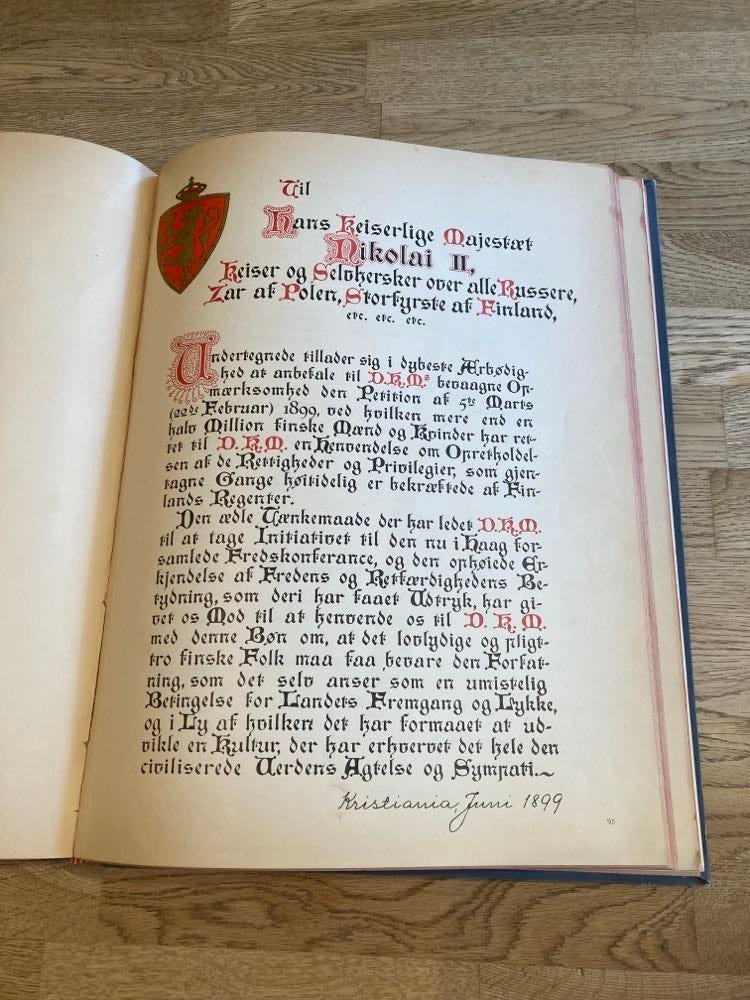 Til
Hans Keiserlige Majestæt
Nikolai II,
Keiser og Selvhersker over alle Russere,
Zar af Polen, Storfyrste af Finland,
etc. etc. etc.
Undertegnede tillader sig i dybeste Ærbødig-
hed at anbefale til D.K.M.s bevaagne Op-
mærksomhed den Petition af 5te Marts
(22de Februar) 1899, ved hvilken mere end en
halv Million finske Mænd og Kvinder har ret-
tet til D.K.M. en Henvendelse om Opretholdel-
sen af de Rettigheder og Privilegier, som gjen-
tagne Gange høitidelig er bekræftede af Fin-
lands Regenter.
Den ædle Tænkemaade der har ledet D.K.M.
til at tage Initiativet til den nu i Haag for-
samlede Fredskonferance, og den ophøiede Er-
kjendelse af Fredens og Retfærdighedens Be-
tydning, som deri har faaet Udtryk, har gi-
vet os Mod til at henvende os til D.K.M.
med denne Bøn om, at det lovlydige og pligt-
tro finske Folk maa faa bevare den Forfat-
ning, som det selv anser som en umistelig
Betingelse for Landets Fremgang og Lykke,
og i Ly af hvilken det har formaaet at ud-
vikle en Kultur, der har erhvervet det hele den
civiliserede Verdens Agtelse og Sympati.~
Kristiania, Juni 1899
95